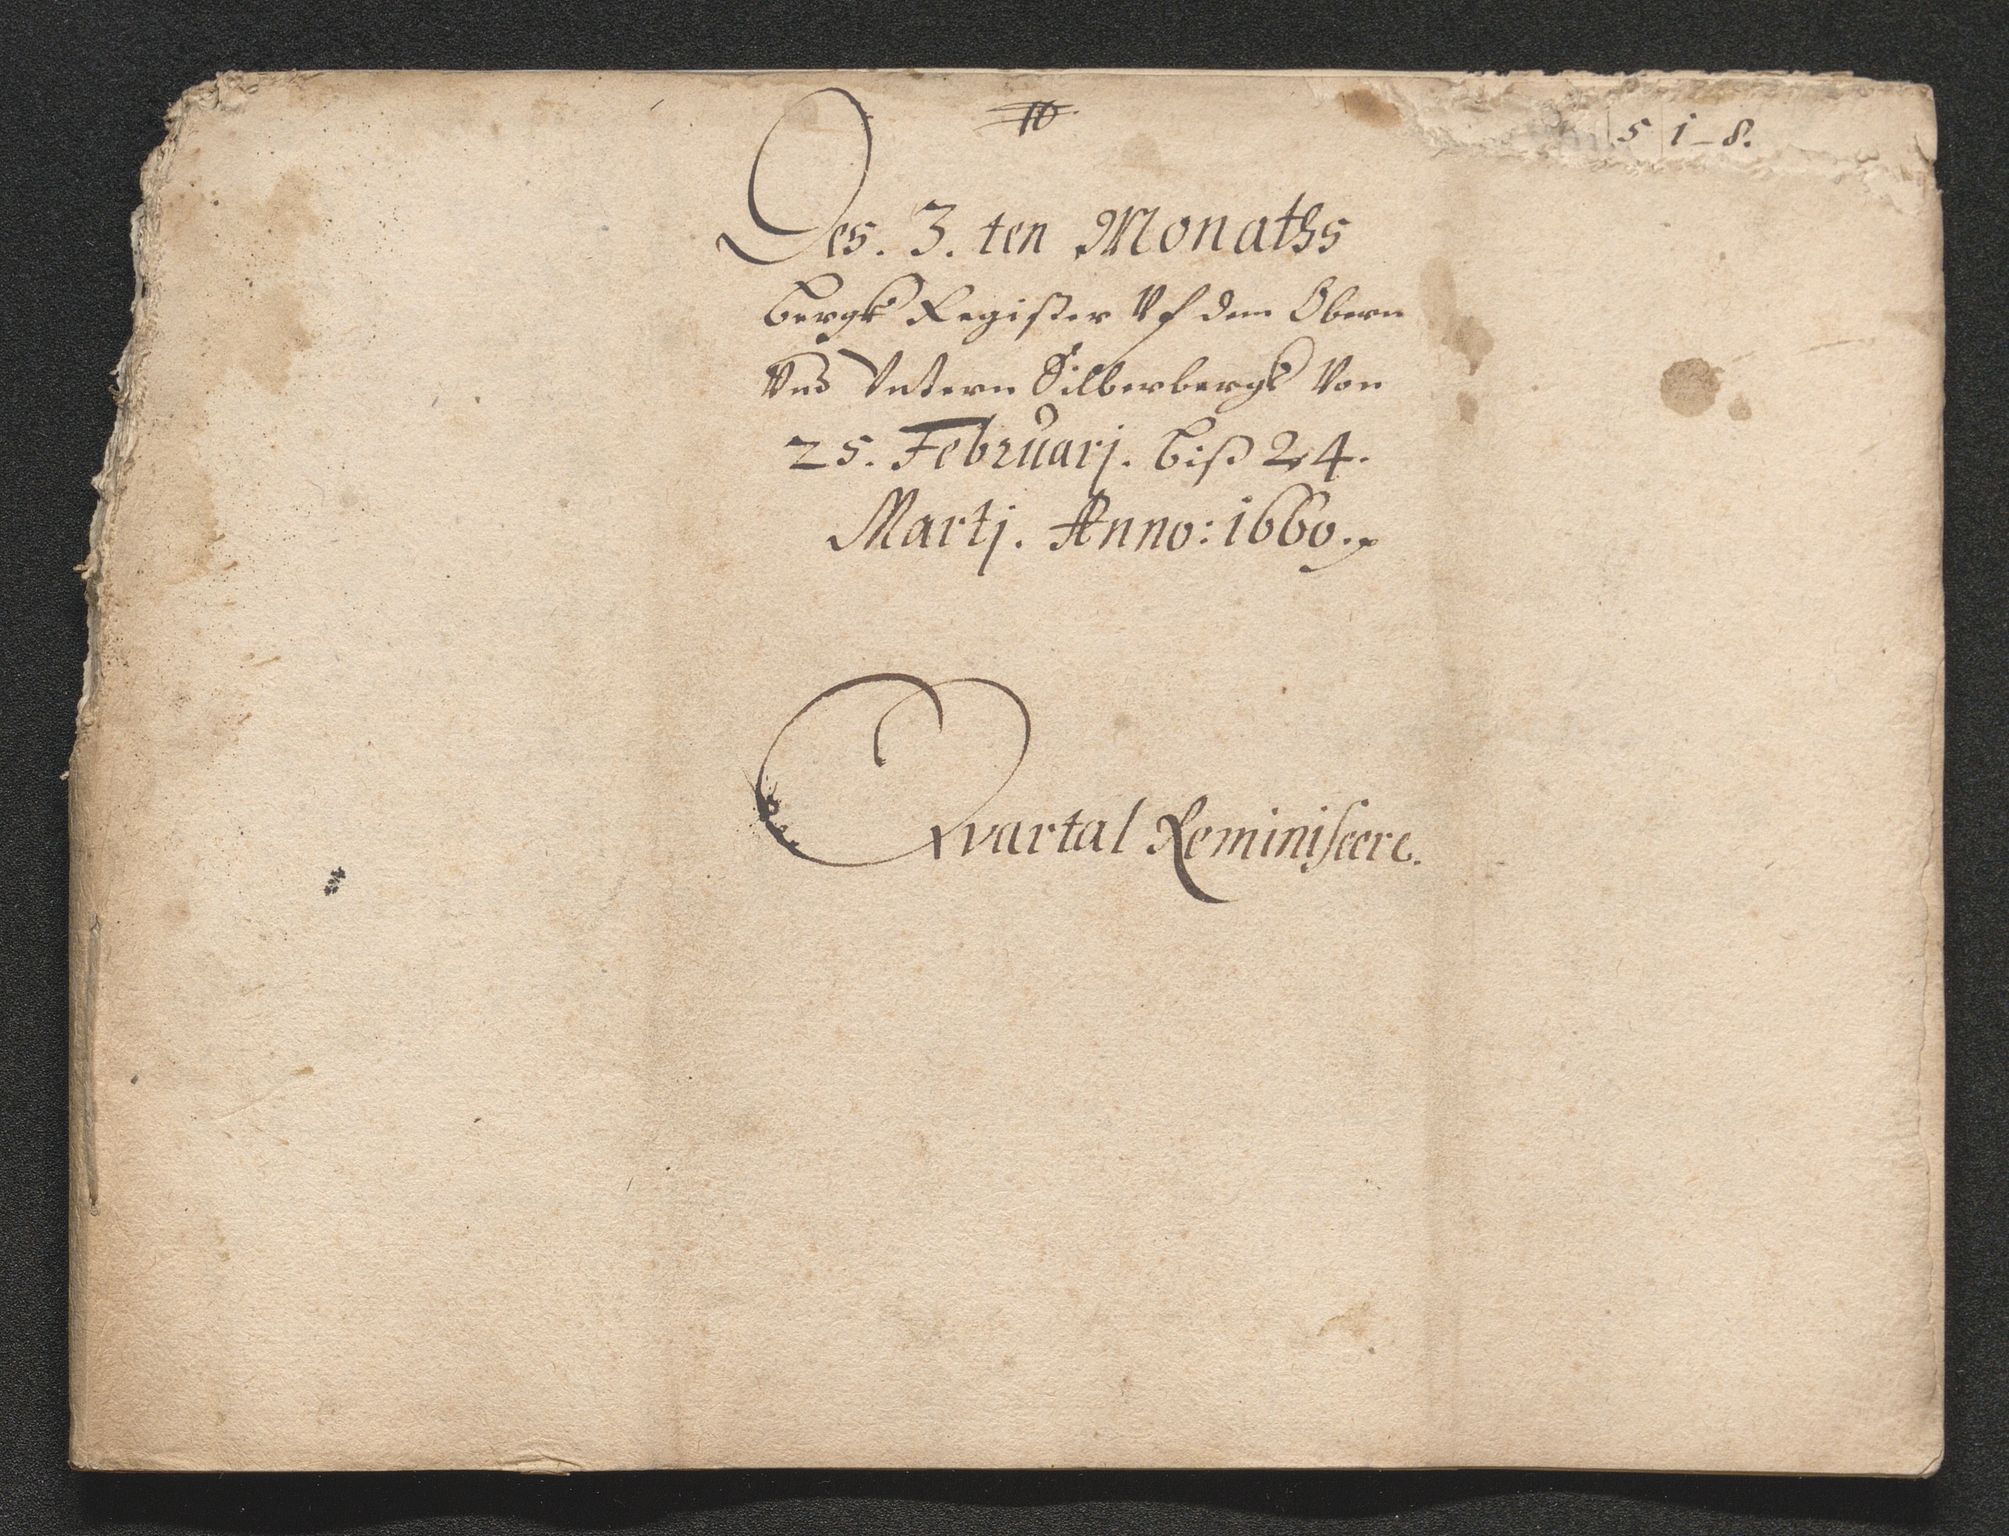 10
5 1-8.
Des. 3. ten Monaths
bergk Register Vf dem Obern
Vnd Vntern Silberbergk Von
25. Februarj. biß 24.
Martj. Anno: 1660.
Qvartal Reminiscere.